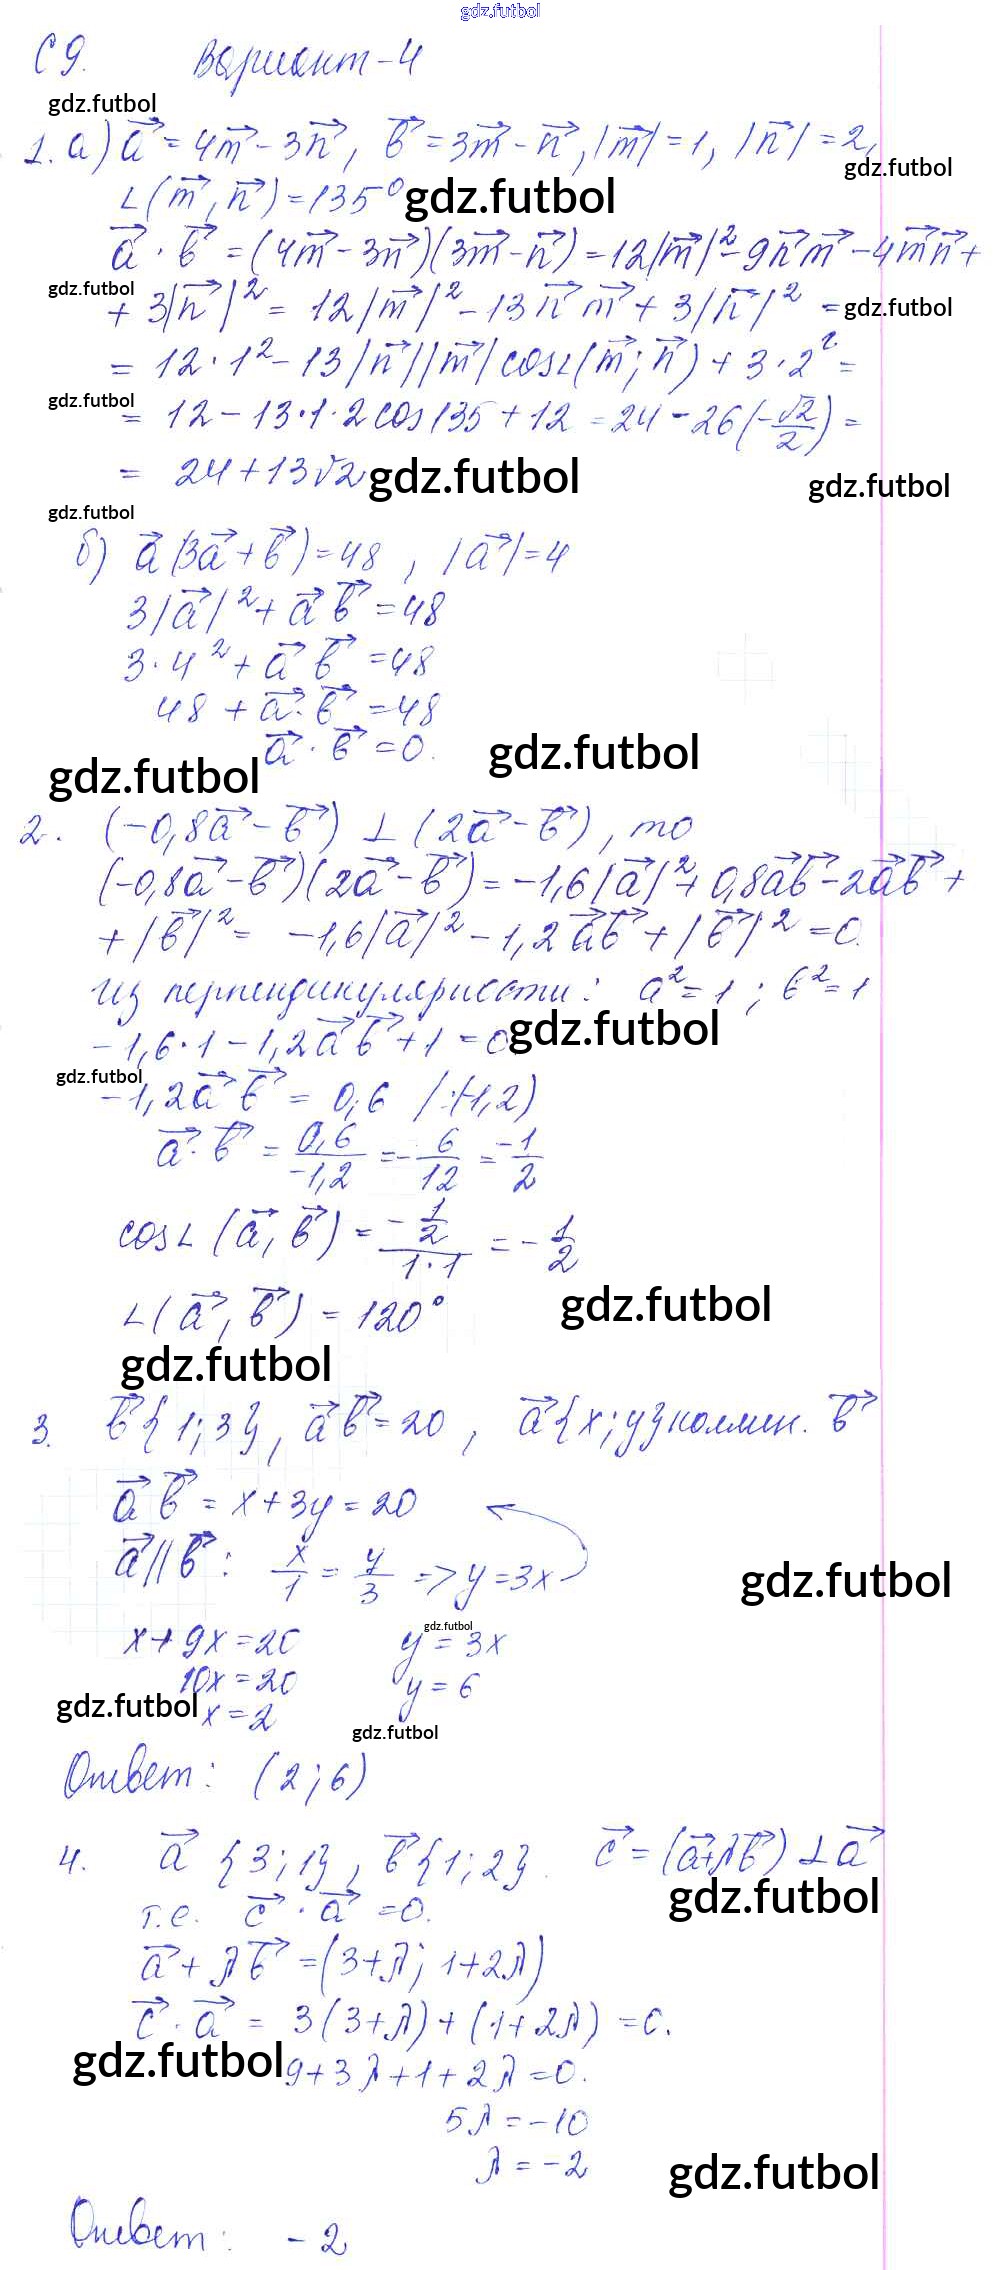 gdz.futbol
С 9. Вариант-4
gdz.futbol
1. а) a⃗ = 4m⃗ - 3n⃗, b⃗ = 3m⃗ - n⃗, |m⃗| = 1, |n⃗| = 2,
gdz.futbol
∠(m⃗, n⃗) = 135° gdz.futbol
a⃗ · b⃗ = (4m⃗ - 3n⃗)(3m⃗ - n⃗) = 12|m⃗|² - 9n⃗m⃗ - 4m⃗n⃗ +
gdz.futbol
+ 3|n⃗|² = 12|m⃗|² - 13n⃗m⃗ + 3|n⃗|² = gdz.futbol
= 12 · 1² - 13|n⃗||m⃗| cos∠(m⃗; n⃗) + 3 · 2² =
gdz.futbol
= 12 - 13 · 1 · 2 cos 135 + 12 = 24 - 26(-√2/2) =
= 24 + 13√2 gdz.futbol gdz.futbol
gdz.futbol
б) a⃗(3a⃗ + b⃗) = 48, |a⃗| = 4
3|a⃗|² + a⃗b⃗ = 48
3 · 4² + a⃗b⃗ = 48
48 + a⃗ · b⃗ = 48
a⃗ · b⃗ = 0. gdz.futbol
gdz.futbol
2. (-0,8a⃗ - b⃗) ⊥ (2a⃗ - b⃗), то
(-0,8a⃗ - b⃗)(2a⃗ - b⃗) = -1,6|a⃗|² + 0,8a⃗b⃗ - 2a⃗b⃗ +
+ |b⃗|² = -1,6|a⃗|² - 1,2a⃗b⃗ + |b⃗|² = 0.
из перпендикулярности: a² = 1; b² = 1
-1,6 · 1 - 1,2a⃗b⃗ + 1 = 0. gdz.futbol
gdz.futbol
-1,2a⃗b⃗ = 0,6 /:(-1,2)
a⃗ · b⃗ = 0,6/-1,2 = -6/12 = -1/2
cos∠(a⃗, b⃗) = (-1/2)/(1·1) = -1/2
∠(a⃗, b⃗) = 120° gdz.futbol
gdz.futbol
3. b⃗{1; 3}, a⃗b⃗ = 20, a⃗{x; y} коллин. b⃗
a⃗b⃗ = x + 3y = 20
a⃗||b⃗: x/1 = y/3 => y = 3x gdz.futbol
gdz.futbol
x + 9x = 20 y = 3x
10x = 20 y = 6
gdz.futbol x = 2
gdz.futbol
Ответ: (2; 6)
4. a⃗{3; 1}, b⃗{1; 2}. c⃗ = (a⃗+λb⃗) ⊥ a⃗
gdz.futbol
т.е. c⃗ · a⃗ = 0.
a⃗ + λb⃗ = (3+λ; 1+2λ)
c⃗ · a⃗ = 3(3+λ) + (1+2λ) = 0.
gdz.futbol 9+3λ+1+2λ = 0.
5λ = -10
λ = -2 gdz.futbol
Ответ: -2